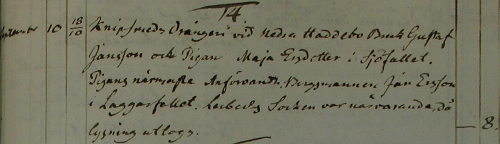 14
10 18/10 Knipsmeds Drängen vid Nedra Haddebo Bruk Gustaf
Jansson och Pigan Maja Ersdotter i Sjöfallet.
Pigans närmaste Anförvandt, Bergsmannen Jan Ersson
i Laggarfallet, Lerbecks Socken var närvarande, då
lysning uttogs. — 8.